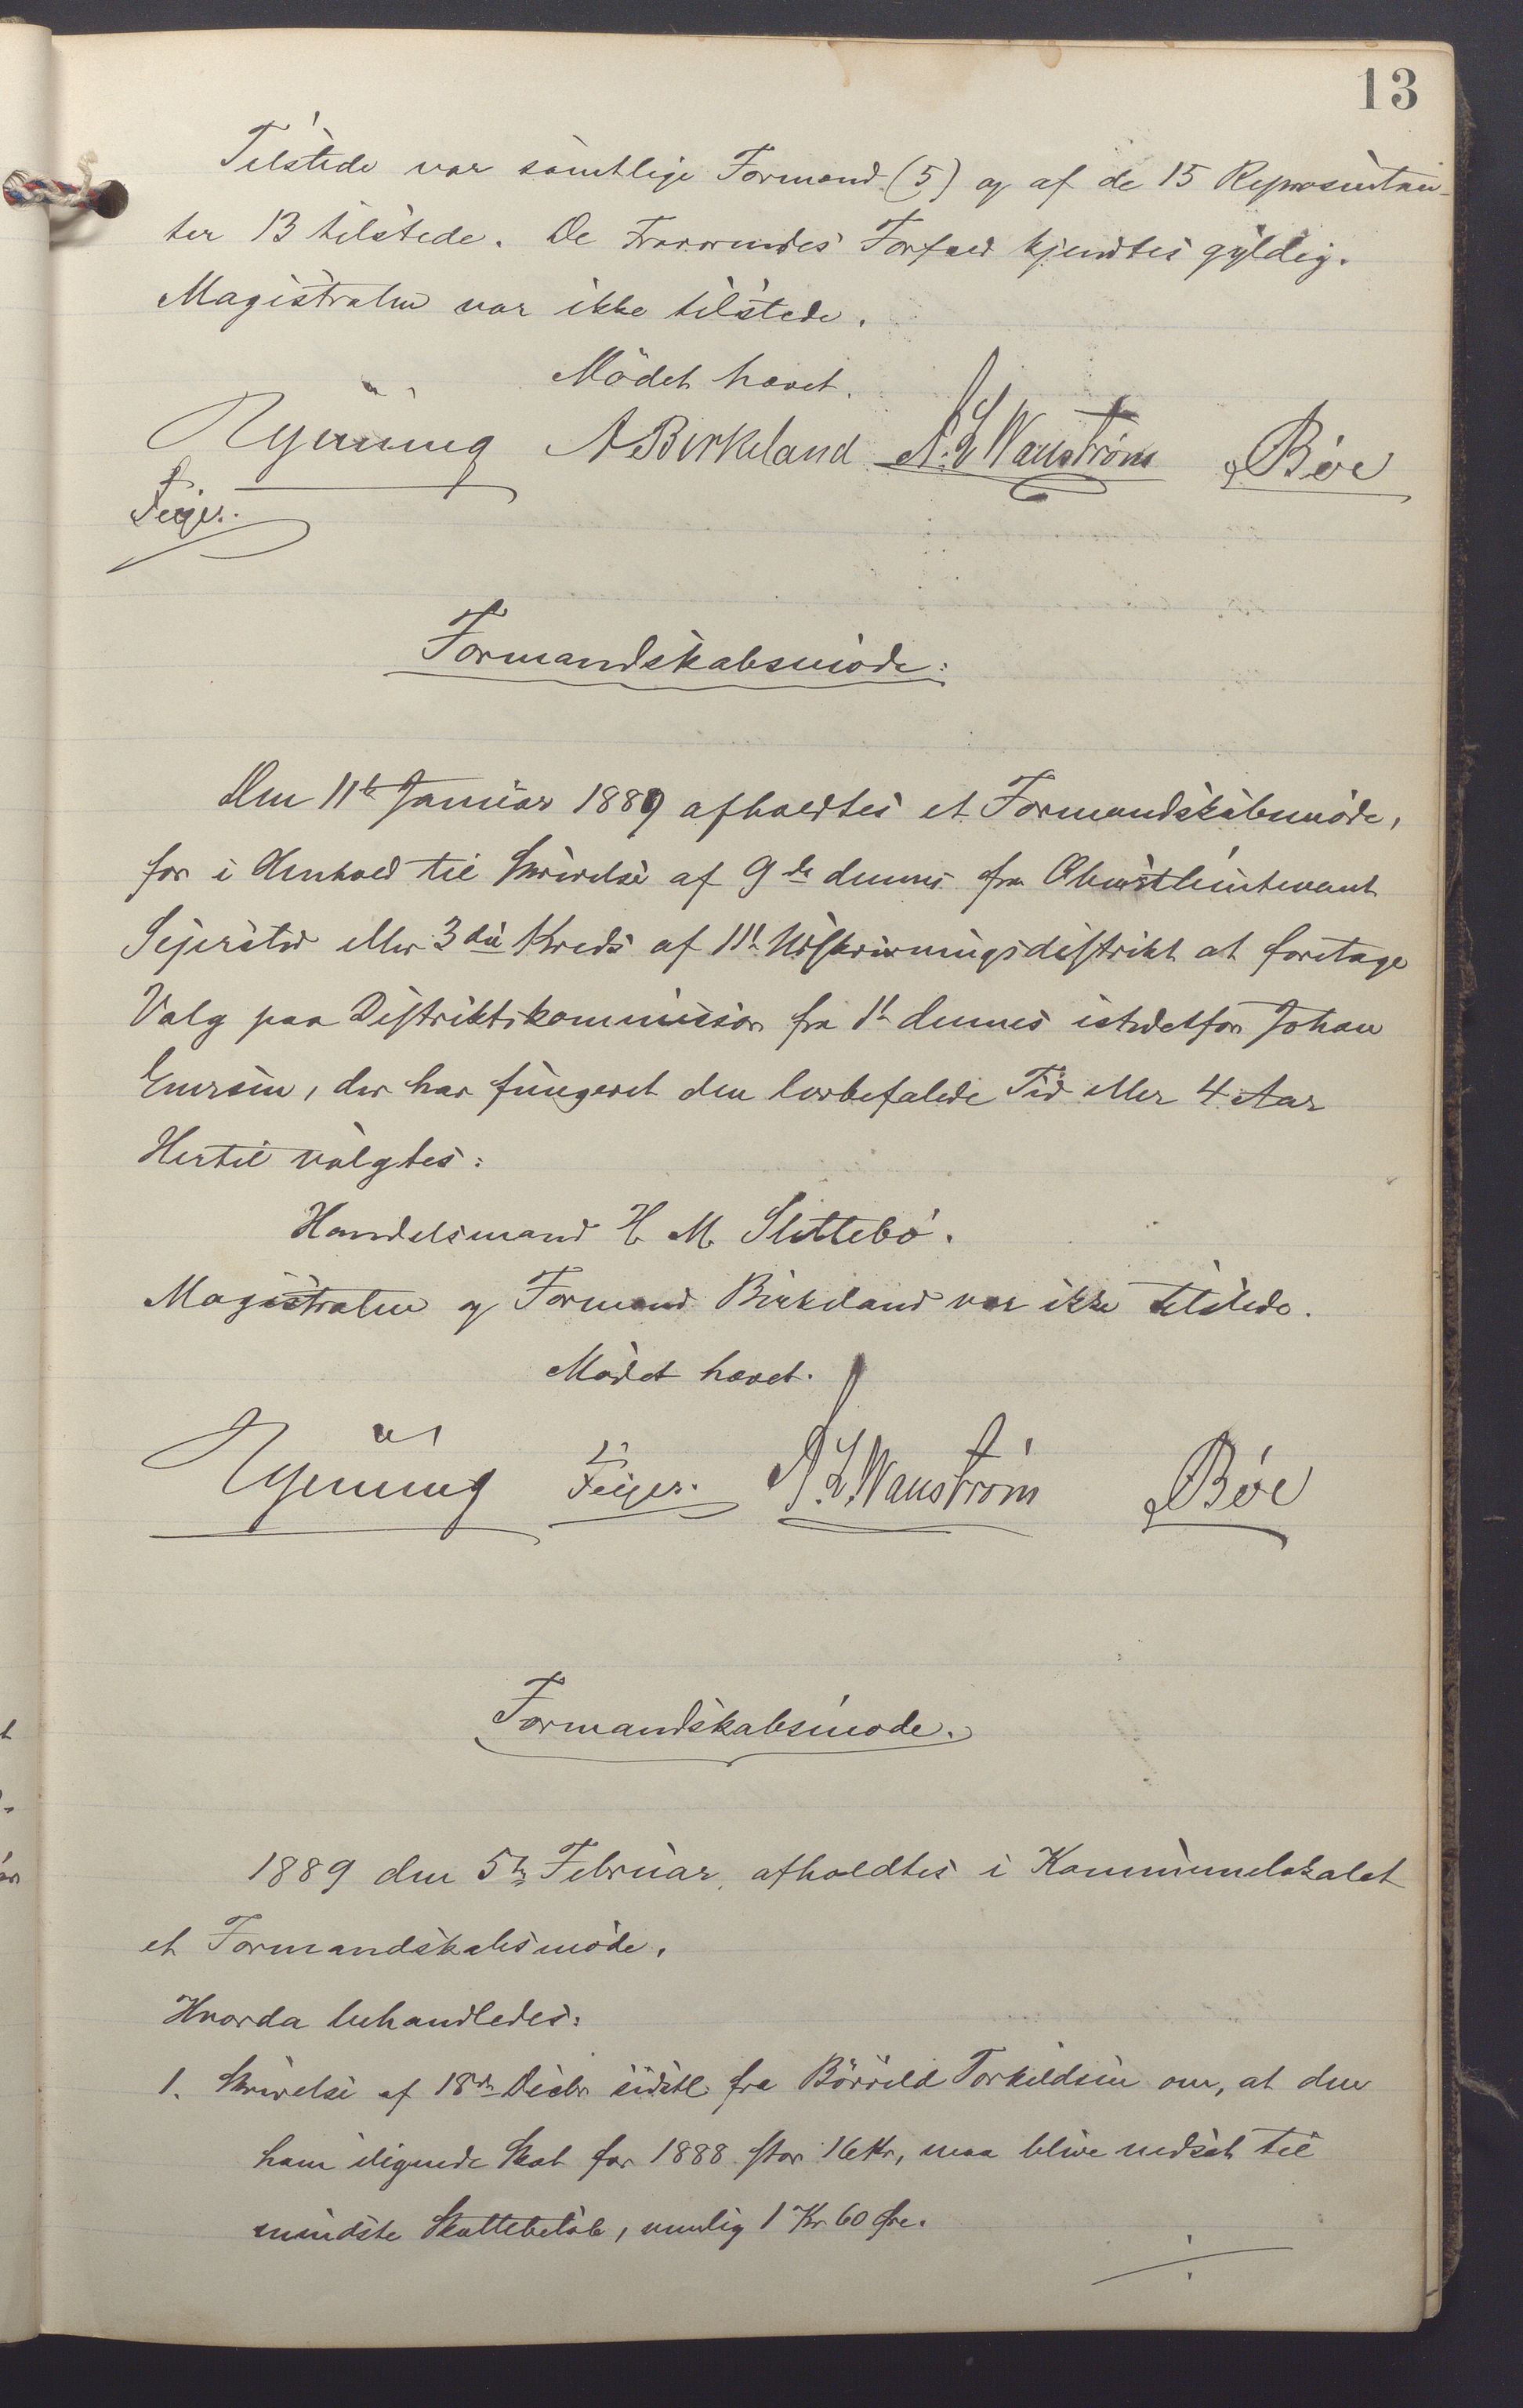 13
Tilstede var samtlige Formænd (5) og af de 15 Repræsentan-
ter 13 tilstede. De Fraværendes Forfald kjendtes gyldig.
Magistraten var ikke tilstede.
Mödet hævet.
A Birkeland A. L. Wanstrøm Bøe
Feyer.
Formandskabsmöde:
Den 11te Januar 1889 afholdtes et Formandskabsmöde,
for i Henhold til Skrivelse af 9de dennes fra Oberstlieutenant
Sejersted eller 3die Kreds af 11te Udskrivningsdistrikt at foretage
Valg paa Distriktskommissær fra 1te dennes istedetfor Johan
Emersen, der har fungeret den lovbefalede Tid eller 4 Aar
Hertil valgtes:
Handelsmand H. M. Slettebö.
Magistraten og Formand Birkeland var ikke tilstede.
Mödet hævet.
Feyer. A. L. Wanstrøm Bøe
Formandskabsmöde.
1889 den 5te Februar, afholdtes i Kommunelokalet
et Formandskabsmöde.
Hvorda behandledes:
1. Skrivelse af 18de Decbr sidstl. fra Börrild Torkildsen om, at den
ham ilignede Skat for 1888 stor 16 Kr, maa blive nedsat til
mindste Skattebeløb, nemlig 1 Kr 60 Øre.